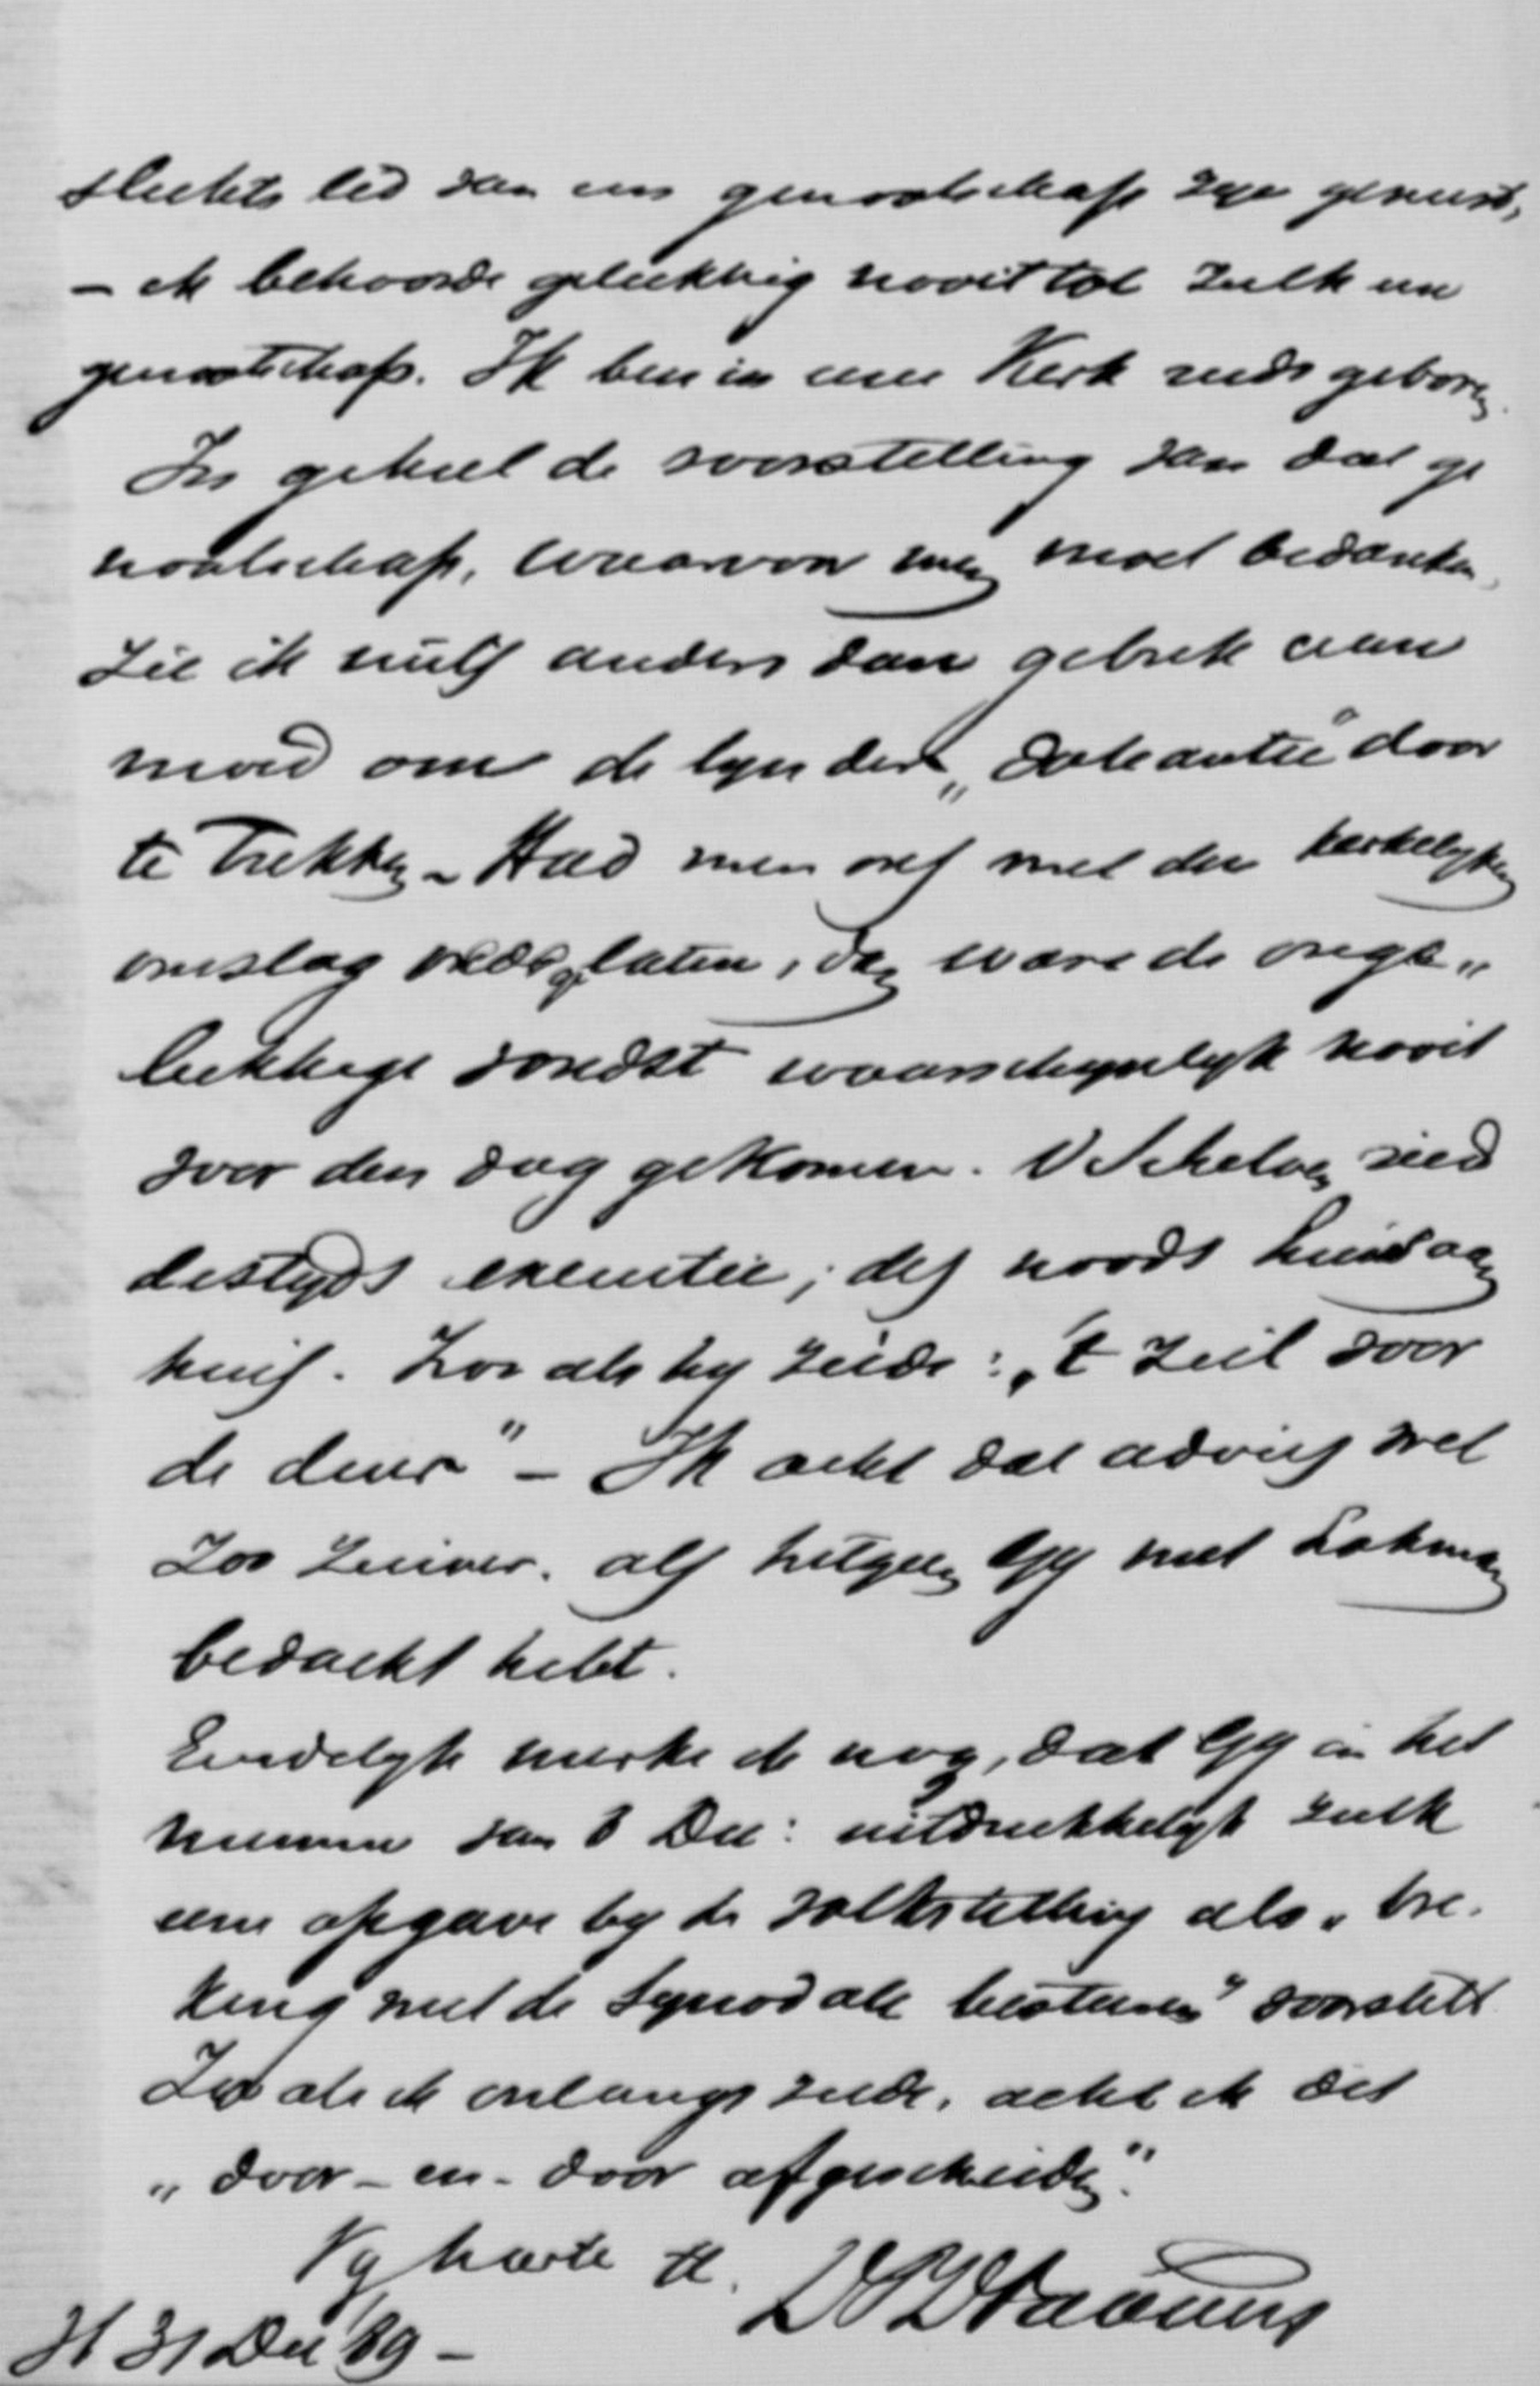 slechts lid van een genootschap zijn geweest,
– ik behoorde gelukkig nooit tot zulk een
genootschap. Ik ben in eene Kerk geboren.
In geheel de voorstelling van dat ge
nootschap, waarvoor men moet bedanken,
zie ik niets anders dan gebrek aan
moed om de lijn der „doleantie" door
te trekken – Had men ons met den kerkelijken
omslag gelaten, dan ware de onge„
lukkige vondst waarschijnlijk nooit
voor den dag gekomen. V Schelven ried
destijds executie; des noods huis aan
huis. Zoo als hij zeide: „'t zeil voor
de deur" – Ik acht dat advies vrel
zoo zuiver, als hetgeen Gij met Lohman
bedacht hebt.
Eindelijk merke ik nog, dat Gij in het
nummer van 8 Dec: uitdrukkelijk zulk
eene opgave bij de volkstelling als „bre.
king met de Synodale besturen" voorstelt
Zoo als ik onlangs zeide, acht ik dit
„door-en-door afgescheiden".
Vy harte tt.
H 31 Dec '89 –